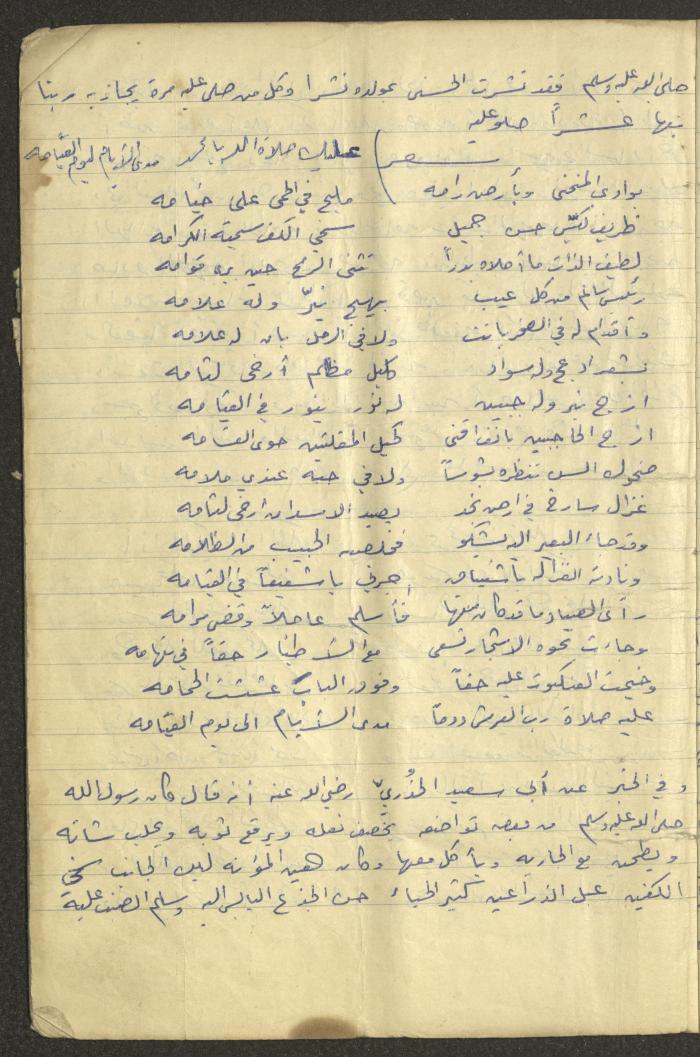 صلى الله عليه وسلم فقد نشرت الحسنى بمولده نشرا وكل من صلى عليه مرة يجازيه ربنا
بها عشراً صلو عليه
شعر عليك صلاة الله يا محمد مدى الأيام ليوم القيامه
بوادي المنحنى وبأرض رامه مليح في الحمى على خيامه
ظريف كيّس حسن جميل سخي الكف سيمته الكرامه
لطيف الذات ما أحلاه بدراً تثنى الرمح حين يرى قوامه
رئيس سالم من كل عيب بهيج نيرّ وله علامه
وأقدام له في الصخر بانت ولا في الرمل بان له علامه
بشعر ادعج وله سواد كليل مظلم أرخى لثامه
ازج نير وله جبين له نور ينور في القيامه
ازج الحاجبين بانف اقنى كحيل المقلتين حوى الشامه
ضحوك السن تنظره بشوساً ولا في حبه عندي ملامه
غزال سارح في ارض نجد يصيد الاسد ان أرخى لثامه
وقد جاء البعير اليه يشكو فخلصه الحبيب من الظلامه
ونادته الغزاله يا شفيعي اجرني يا شفيعاً في القيامه
رأى الصياد ما قد كان منها فأسلم عاجلاً وقضى مرامه
وجاءت نحوه الاشجار تسعى مع الاطيار حقاً في تهامه
وخيمت العنكبوت عليه حقاً وفوق الباب عششت الحمامه
عليه صلاة رب العرش دوماً مدى الأيام الى يوم القيامه
وفي الخبر عن أبي سعيد الخُدُريّ رضي الله عنه أنه قال كان رسول الله
صلى الله عليه وسلم من بعض تواضعه يخصف نعله ويرقع ثوبه ويحلب شاته
ويطحن مع الجاريه ويأكل معها وكان هين المؤنه لين الجانب سخي
الكفين عبل الذراعين كثير الحياء حن الجذع اليابس اليه وسلم الضب عليه